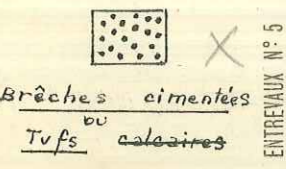 Brêches cimentées
ou
Tufs calcaires
ENTREVAUX N° 5